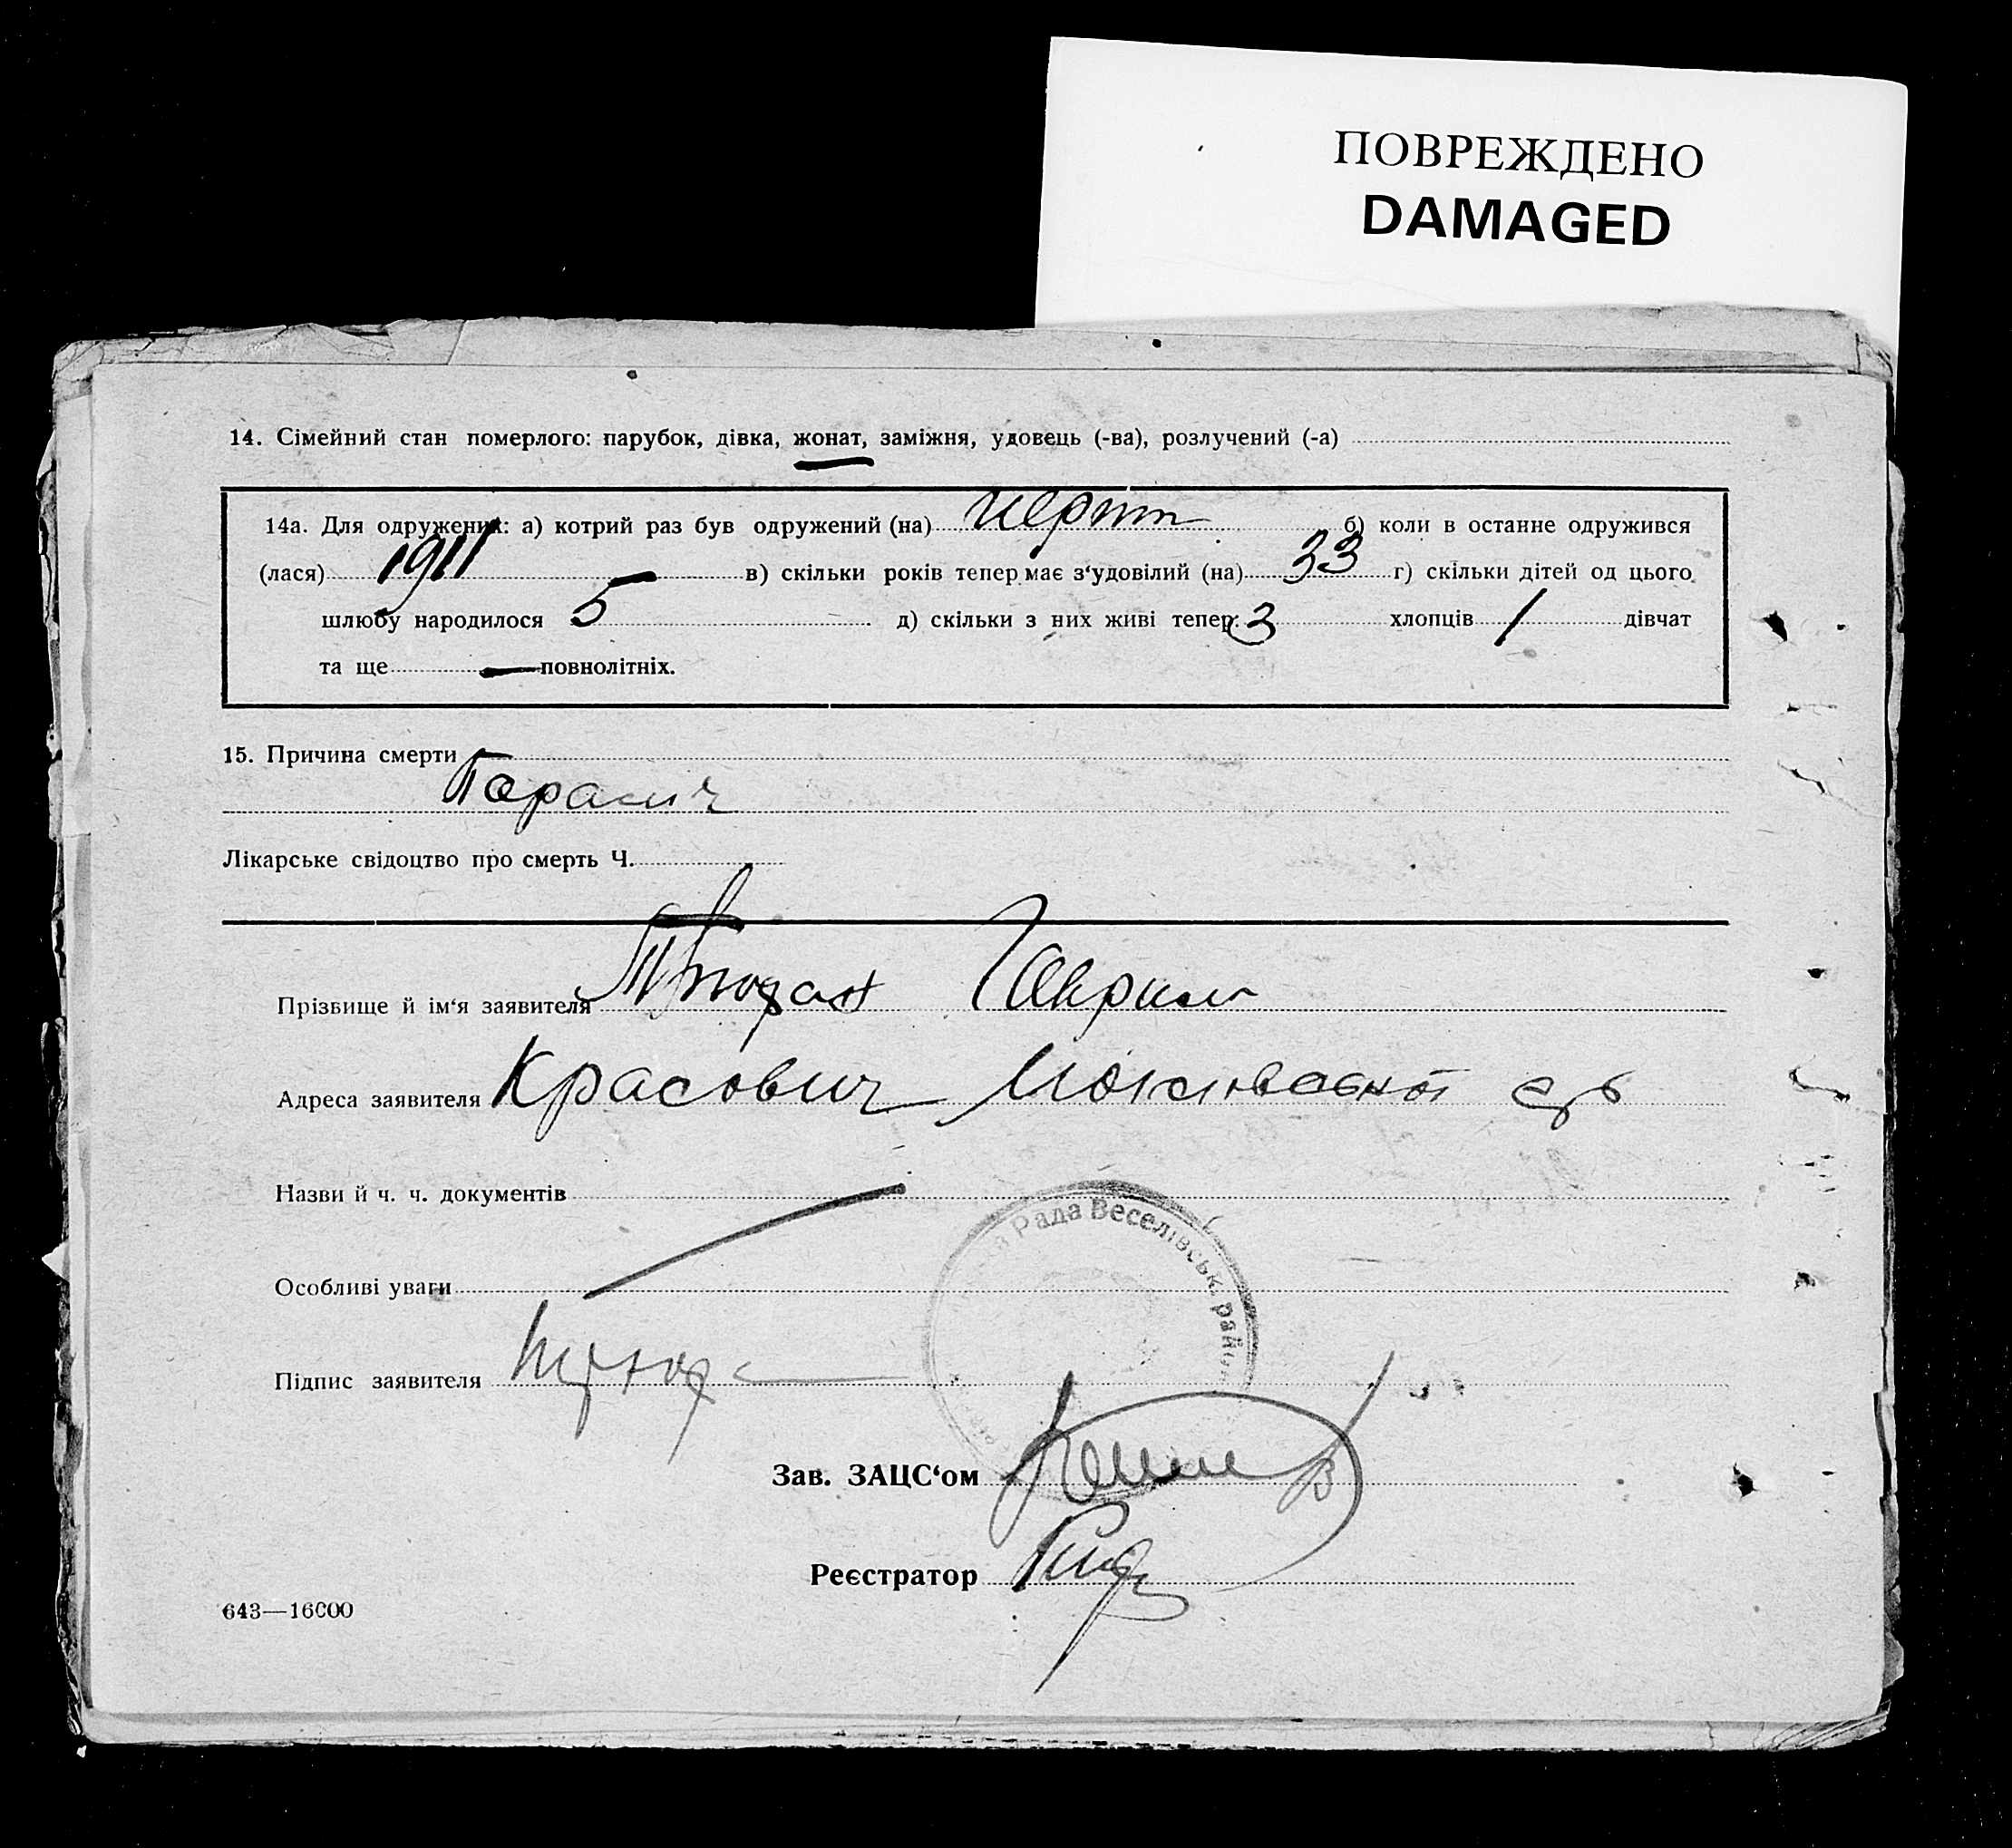 ПОВРЕЖДЕНО
DAMAGED
14. Сімейний стан померлого: парубок, дівка, жонат, заміжня, удовець (-ва), розлучений (-а)
14а. Для одружених: а) котрий раз був одружений (на) б) коли в останнє одружився
(лася) 1911 в) скільки років тепер має з‘удовілий (на) 33 г) скільки дітей од цього
шлюбу народилося 5 д) скільки з них живі тепер: 3 хлопців 1 дівчат
та ще — повнолітніх.
15. Причина смерти
Лікарське свідоцтво про смерть Ч.
Прізвище й ім‘я заявителя Гаврило
Адреса заявителя Красович
Назви й ч. ч. документів
Рада Веселівськ. район
Особливі уваги
Підпис заявителя
Зав. ЗАЦС‘ом
Реєстратор
643—16000